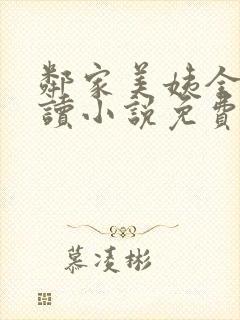 鄰家美姨全
讀小說免費
慕凌彬